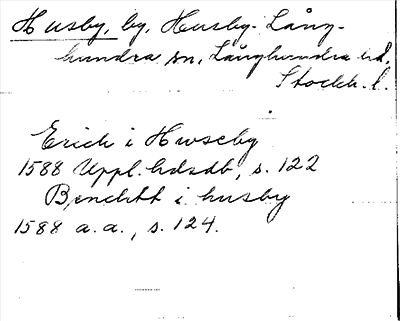 Husby, by, Husby-Lång-
hundra sn, Långhundra hd,
Stockh. l.
Erich i Hwseby
1588 Uppl. hdsdb, s. 122
Bencktt i husby
1588 a.a., s. 124.